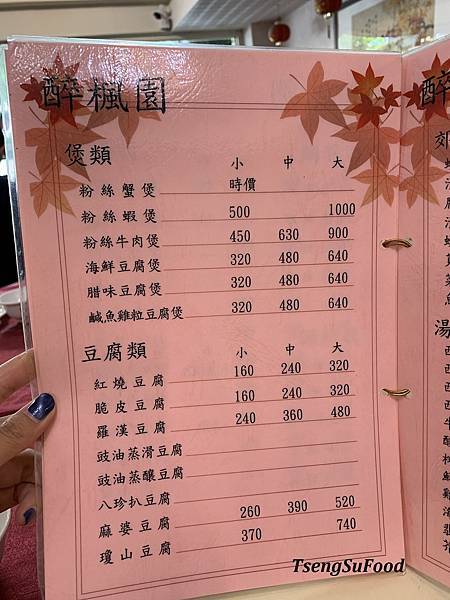 醉楓園
煲類 小 中 大
粉絲蟹煲 時價
粉絲蝦煲 500 1000
粉絲牛肉煲 450 630 900
海鮮豆腐煲 320 480 640
腊味豆腐煲 320 480 640
鹹魚雞粒豆腐煲 320 480 640
豆腐類 小 中 大
紅燒豆腐 160 240 320
脆皮豆腐 160 240 320
羅漢豆腐 240 360 480
豉油蒸滑豆腐
豉油蒸釀豆腐
八珍扒豆腐
麻婆豆腐 260 390 520
瓊山豆腐 370 740
醉
郊
湯
TsengSuFood